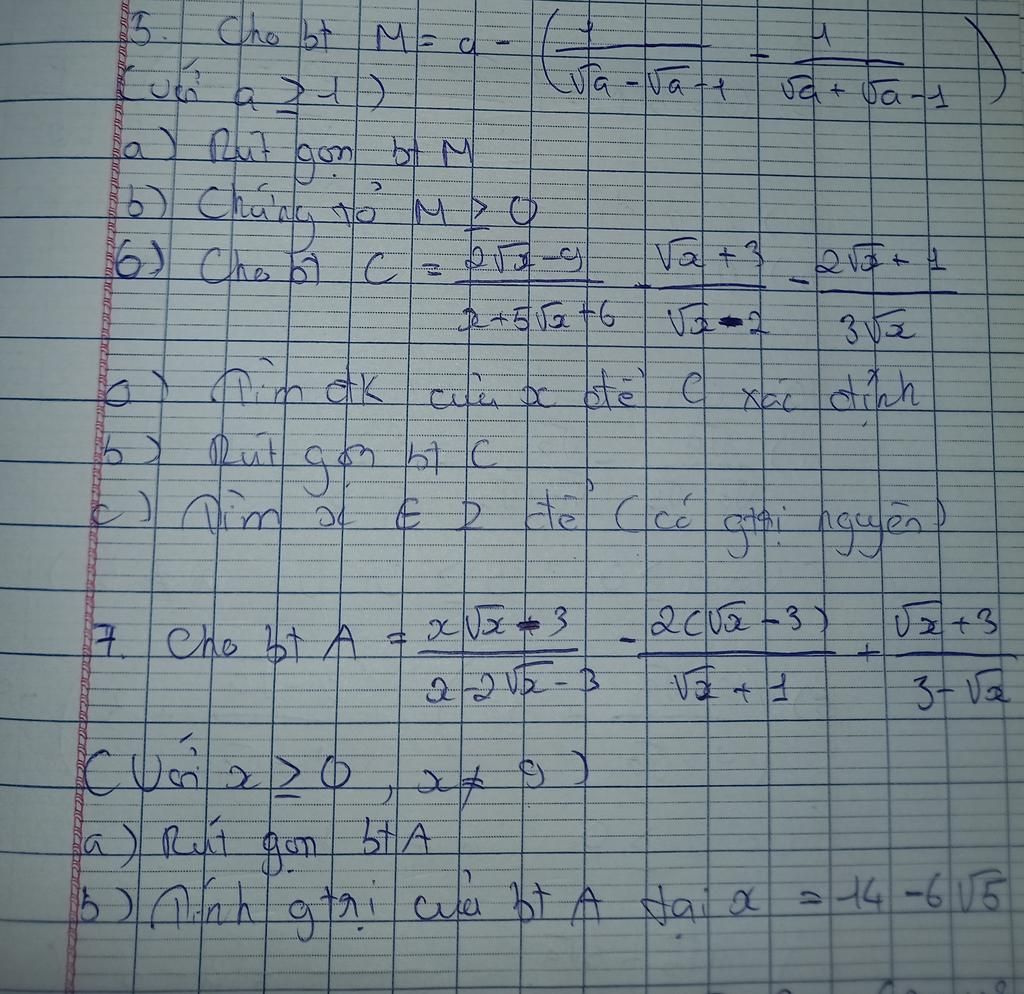 5. Cho bt M = a - (1/(√a - √a-1) - 1/(√a + √a-1))
(với a ≥ 1)
a) Rút gọn bt M
b) Chứng tỏ M ≥ 0
6) Cho bt C = (2√x - 9)/(x + 5√x + 6) - (√x + 3)/(√x - 2) - (2√x + 1)/(3√x)
a) Tìm đk của x để C xác định
b) Rút gọn bt C
c) Tìm x ∈ Z để C có gtrị nguyên
7. Cho bt A = (x√x - 3)/(x - 2√x - 3) - 2(√x - 3)/(√x + 1) + (√x + 3)/(3 - √x)
(Với x ≥ 0, x ≠ 9)
a) Rút gọn bt A
b) Tính gtrị của bt A tại x = 14 - 6√5